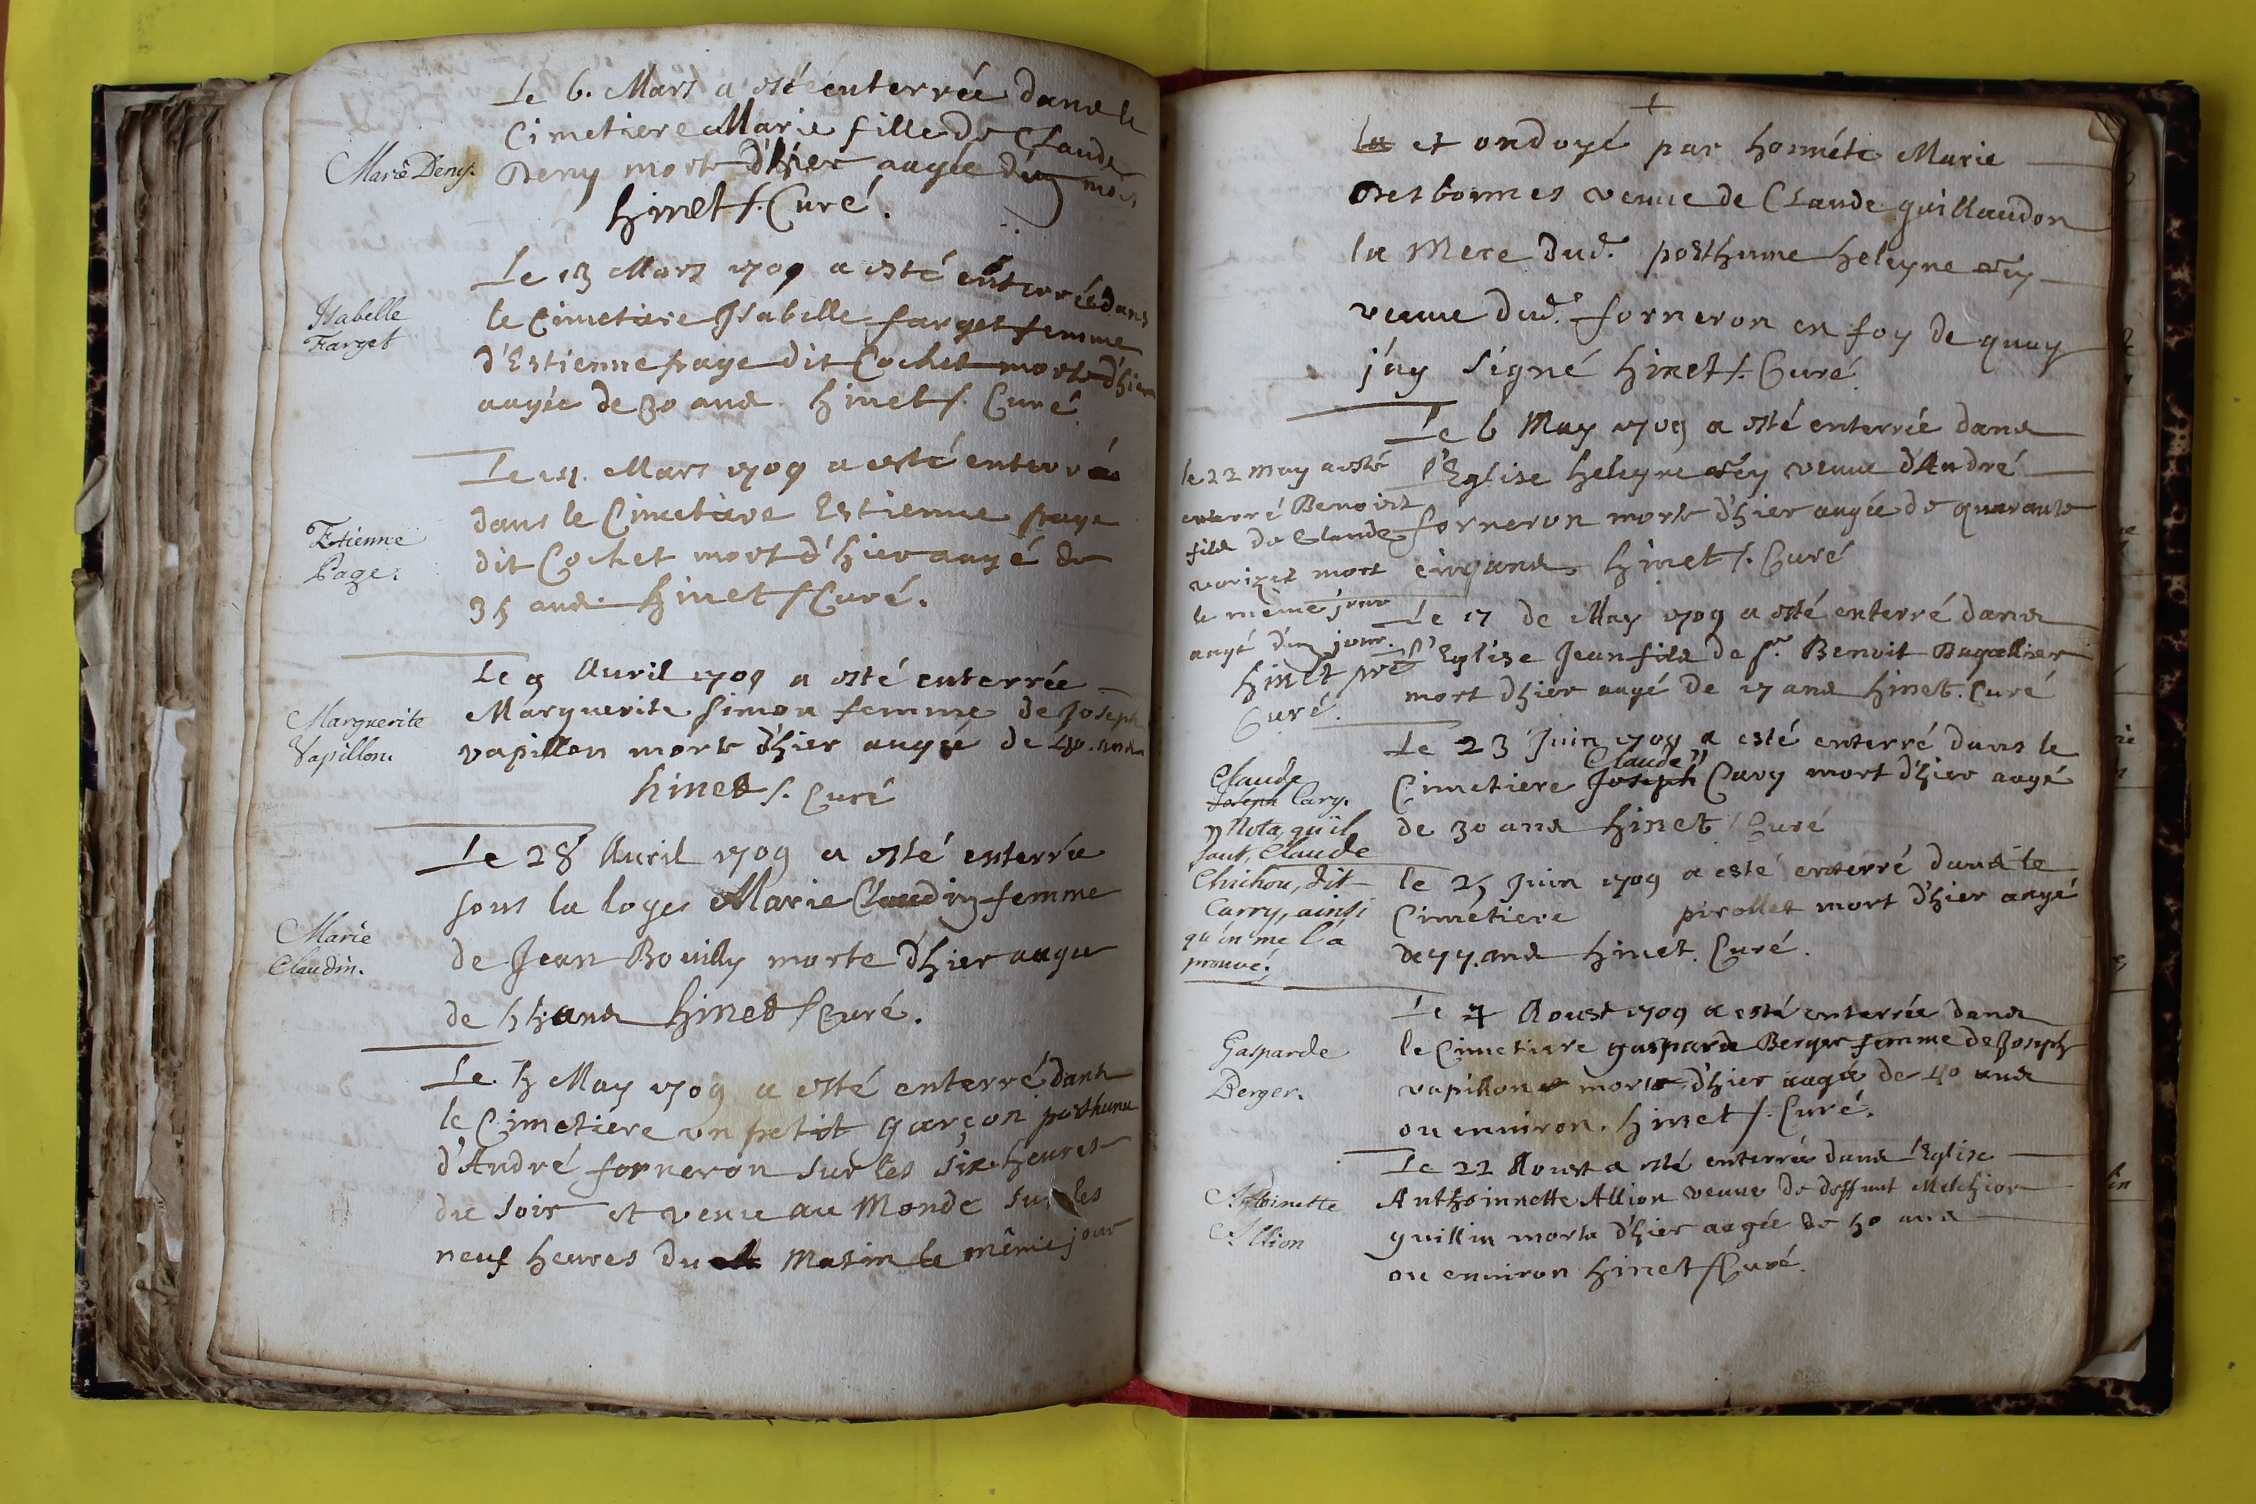 Le 6. Mars a esté enterrée dans le
Cimetiere Marie fille de Claude
Marie Deny.
Deny morte d'hier aagée d'un mois
hinet s. Curé.
Le 13 Mars 1709 a esté enterrée dans
Isabelle
Farget
le Cimetiere Isabelle farget femme
d'Estienne page dit Cochet morte d'hier
aagée de 30 ans. hinet s. Curé
Le 14. Mars 1709 a esté enterré
dans le Cimetiere Estienne page
Etienne
Page.
dit Cochet mort d'hier aagé de
35 ans. hinet s Curé.
Le 9 Auril 1709 a esté enterrée
Marguerite
Vapillon.
Marguerite simon femme de Joseph
vapillon morte d'hier aagée de 40. ans
hinet s. Curé
Le 28 Auril 1709 a esté enterrée
sous la loges Marie Claudin femme
Marie
Claudin.
de Jean Bouilly morte d'hier aagee
de ans hinet s Curé.
Le 5 May 1709 a esté enterré dans
le Cimetiere un petit garçon posthume
d'André forneron sur les six heures
du soir et venu au Monde sur les
neuf heures du Matin le même jour
la et ondoyé par honnéte Marie
Desbonnes veuue de Claude guillaudon
la Mere dud. posthume heleyne
veuue dud. forneron en foy de quoy
j'ay signé hinet s. Curé
Le 6 May 1709 a esté enterrée dans
l'Eglise heleyne veuue d'André
forneron morte d'hier aagée de quarante
cinq ans hinet s. Curé
le 22 may a esté
enterré Benoist
fils de Claude
vorizet mort
le même jour
aagé d'un jour.
hinet pre
Curé.
Le 17 de May 1709 a esté enterré dans
l'Eglise Jean fils de sr. Benoit Dugallier
mort d'hier aagé de 17 ans hinet. Curé
Le 23 Juin 1709 a esté enterré dans le
Claude
Cimetiere Joseph Cary mort d'hier aagé
de 30 ans hinet Curé
Claude
Joseph Cary.
Nota, qu'il
faut, Claude
Chichou, dit
Carry, ainsi
qu'on me l'a
prouvé.
le 25 Juin 1709 a esté enterré dans le
Cimetiere pirollet mort d'hier aagé
de 77. ans hinet. Curé.
Le 7 Aoust 1709 a esté enterrée dans
Gasparde
Berger.
le Cimetiere gasparde Berger femme de Joseph
vapillon morte d'hier aagée de 40 ans
ou enuiron. hinet s. Curé.
Le 22 Aoust a esté enterrée dans l'Eglise
Antoinette
Allion
Anthoinnette Allion veuue de deffunt Melchior
guillin morte d'hier aagée de 50 ans
ou enuiron hinet s Curé.